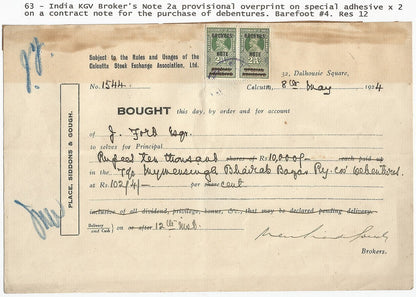 63 - India KGV Broker's Note 2a provisional overprint on special adhesive x 2
on a contract note for the purchase of debentures. Barefoot #4. Res 12
Subject to the Rules and Usages of the
Calcutta Stock Exchange Association, Ltd.
BROKER'S NOTE
BROKER'S NOTE
32, Dalhousie Square,
No. 1544.
Calcutta, 8th May 1924
BOUGHT this day, by order and for account
PLACE, SIDDONS & GOUGH.
of J. Ford Esqr.
to selves for Principal
Rupees ten thousand shares of Rs 10,000/- each paid up
in the Mymensingh Bhairab Bazar Ry. Co. debentures.
at Rs 102/4/- per share cent
inclusive of all dividend, privilege, bonus, &c., that may be declared pending delivery.
Delivery and Cash } on or after 12th
Brokers.